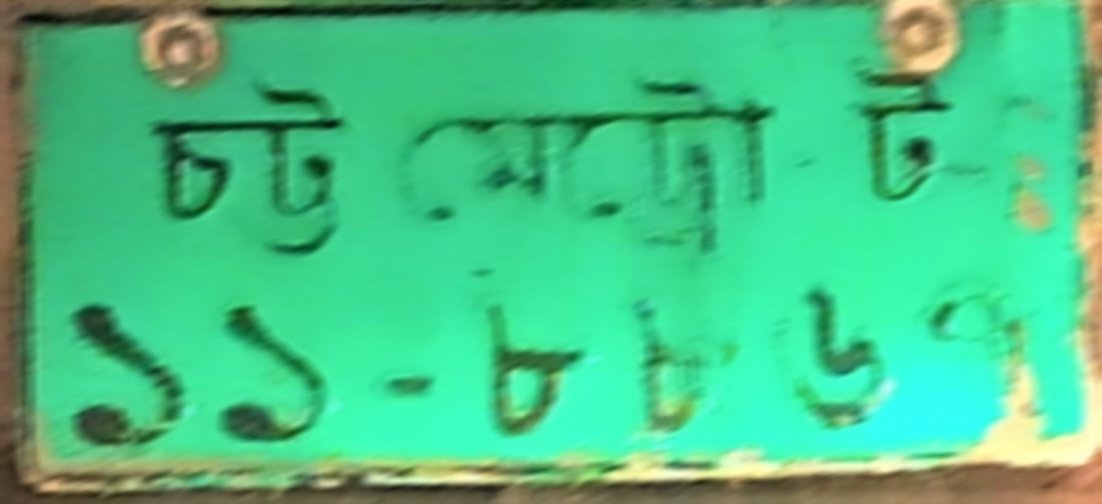 চট্ট মেট্রো ট
১১-৮৮৬৭